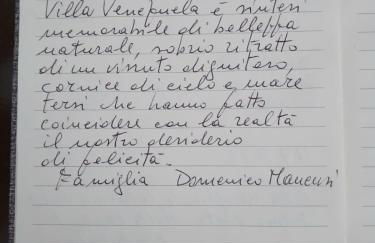 Villa Venezuela è sintesi
memorabile di bellezza
naturale, sobrio ritratto
di un vissuto dignitoso,
cornice di cielo e mare
tersi che hanno fatto
coincidere con la realtà
il nostro desiderio
di felicità.
Famiglia Domenico Mancusi